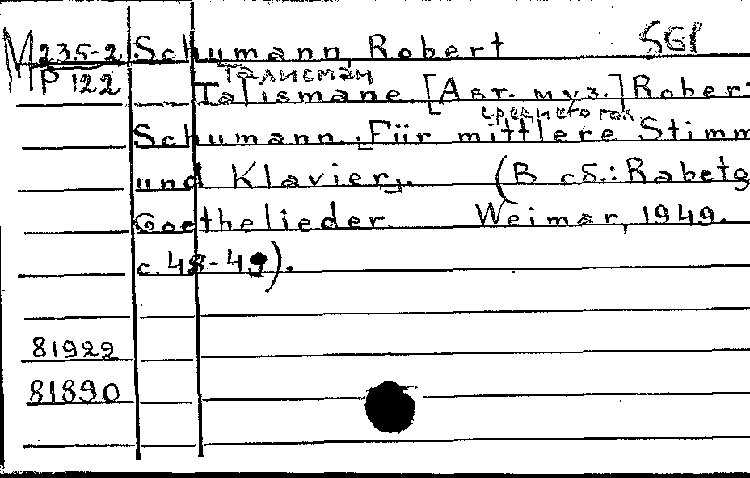 М 23.5-2. Schumann, Robert SGP
P 122 Талисман
Talismane [Авт. муз.] Rober
среднего гол.
Schumann. Für mittlere Stimm
und Klavier. (В сб.: Rabetg
Goethelieder. Weimar, 1949.
с. 48-49).
81922
81890